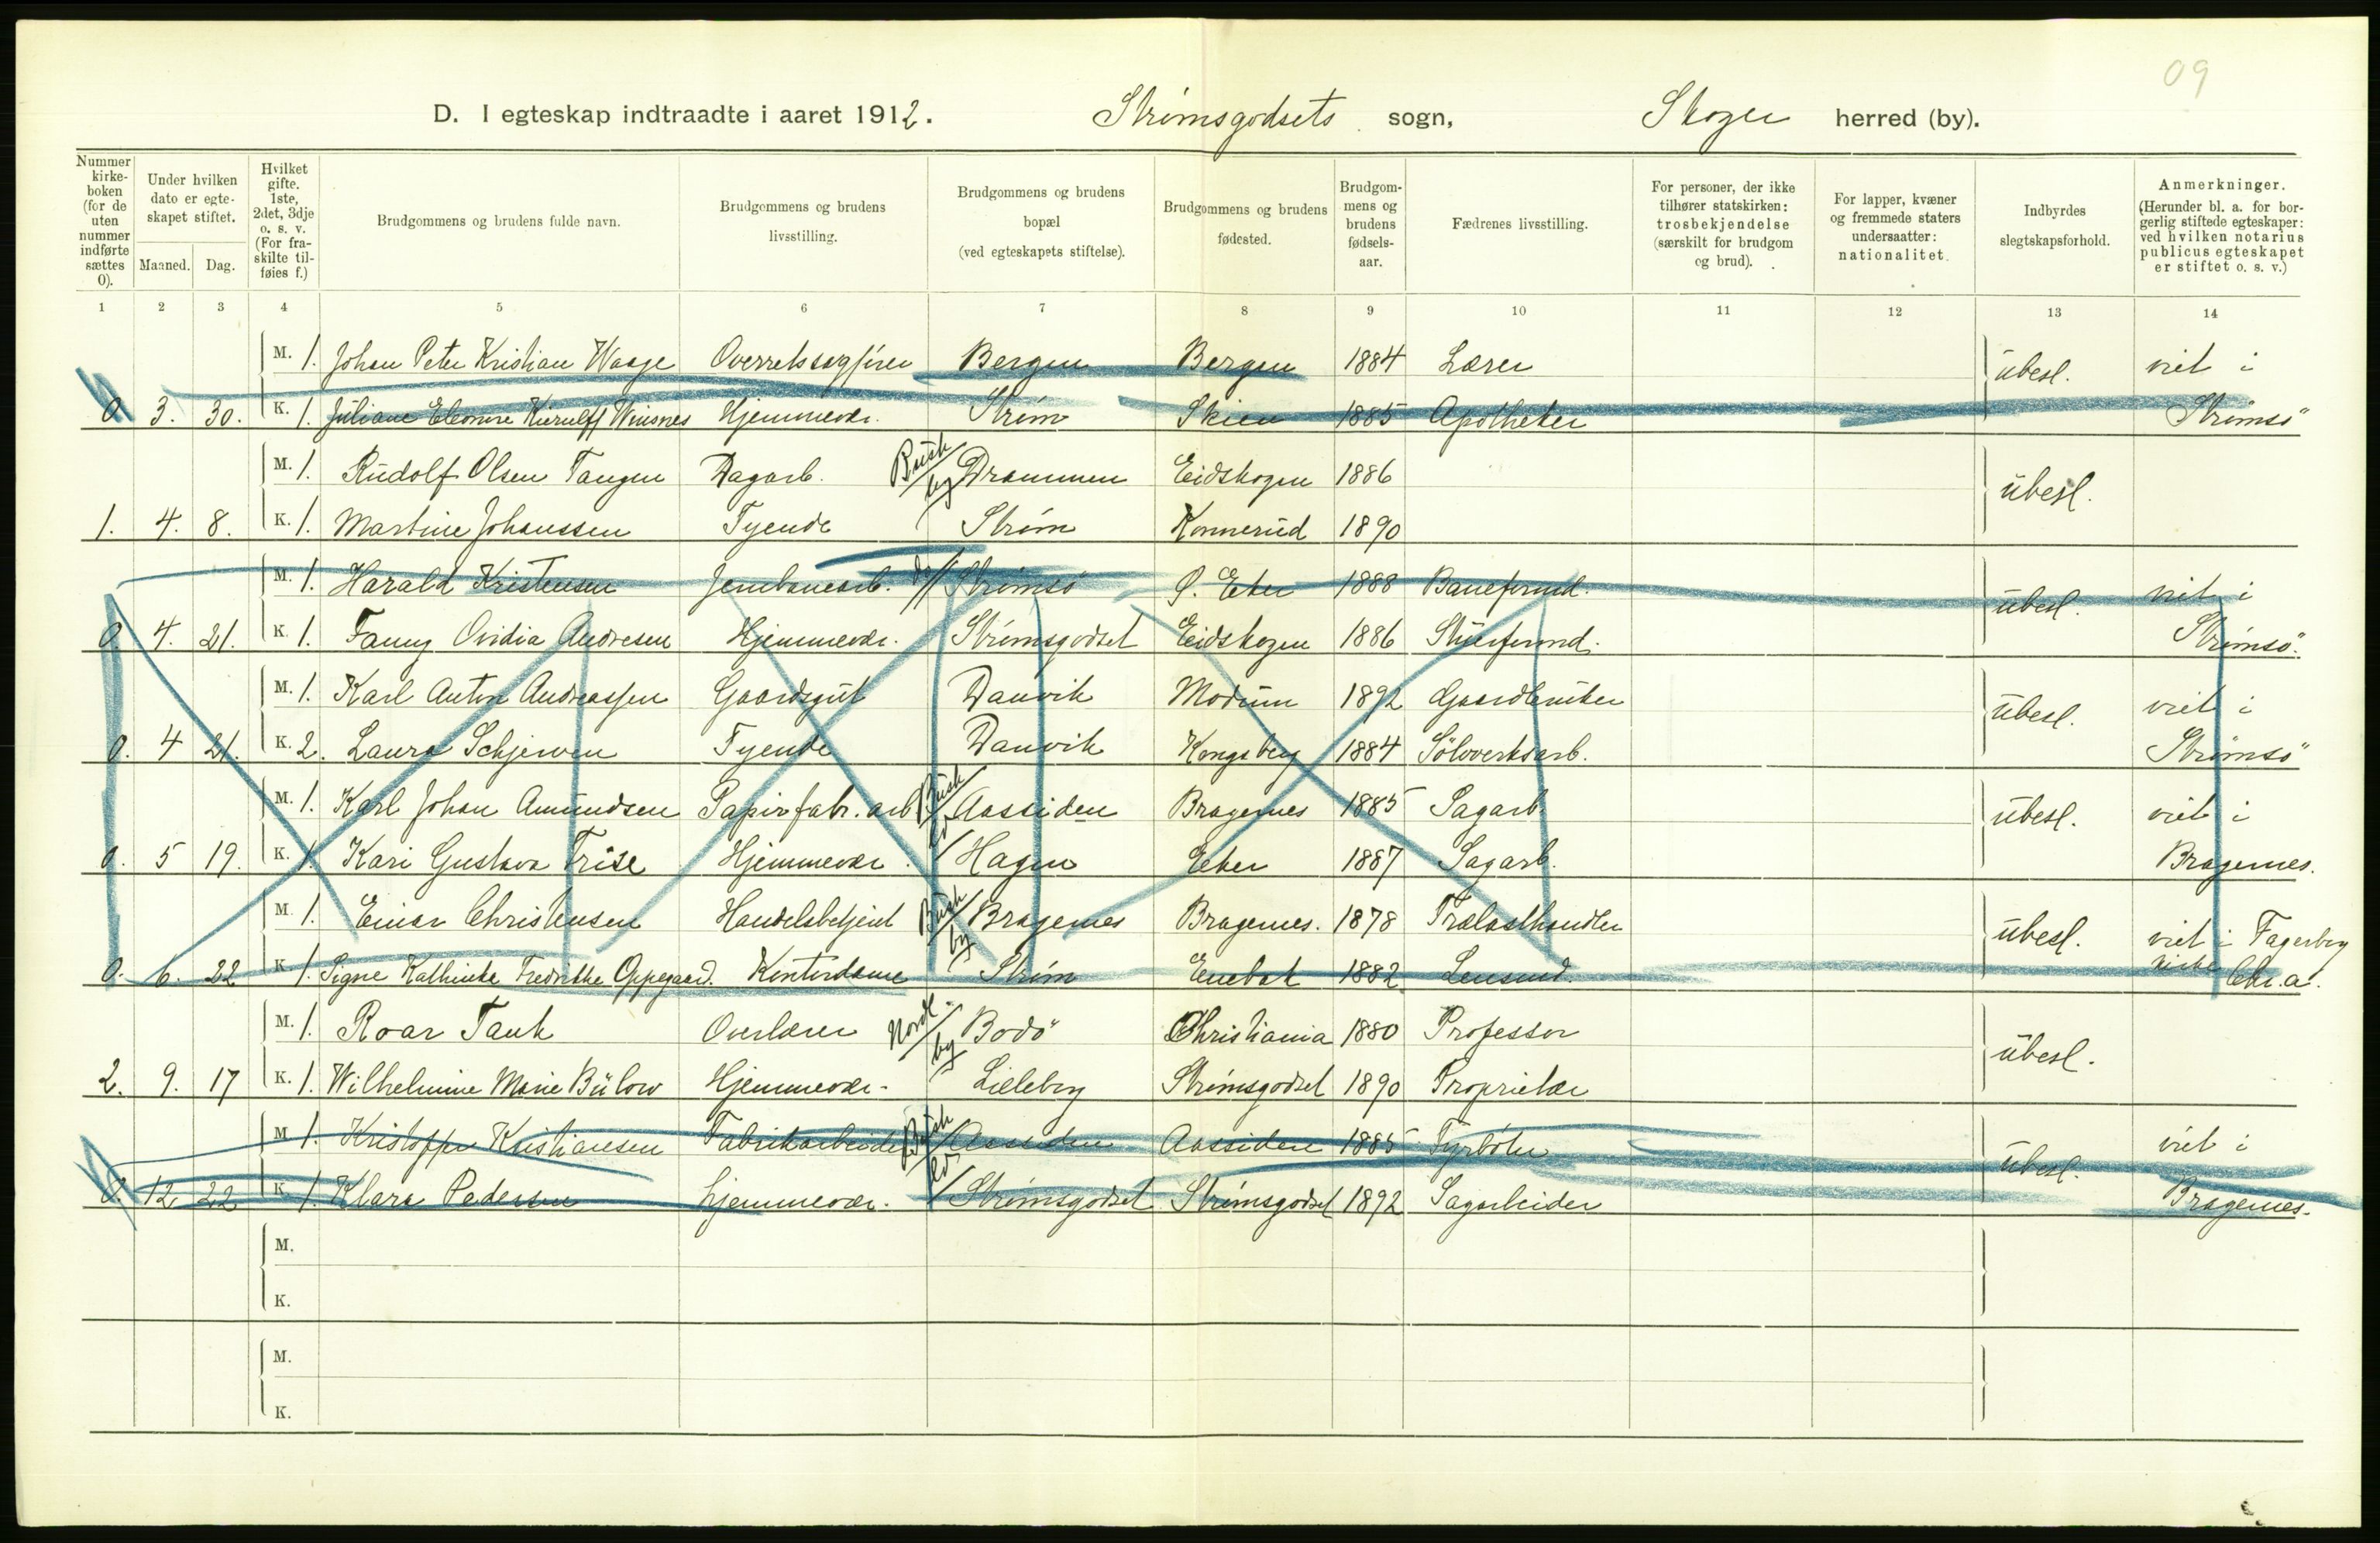 09
D. I egteskap indtraadte i aaret 1912. Strømsgodsets sogn, Skoger herred (by).
Nummer kirkeboken (for de uten nummer indførte sættes 0).
Under hvilken dato er egteskapet stiftet.
Maaned. Dag.
Hvilket gifte. 1ste, 2det, 3dje o. s. v. (For fraskilte tilføies f.)
Brudgommens og brudens fulde navn.
Brudgommens og brudens livsstilling.
Brudgommens og brudens bopæl (ved egteskapets stiftelse).
Brudgommens og brudens fødested.
Brudgommens og brudens fødselsaar.
Fædrenes livsstilling.
For personer, der ikke tilhører statskirken: trosbekjendelse (særskilt for brudgom og brud).
For lapper, kvæner og fremmede staters undersaatter: nationalitet.
Indbyrdes slegtskapsforhold.
Anmerkninger. (Herunder bl. a. for borgerlig stiftede egteskaper: ved hvilken notarius publicus egteskapet er stiftet o. s. v.)
1 2 3 4 5 6 7 8 9 10 11 12 13 14
M. 1. Johan Peter Kristian Waage Overretssagfører Bergen Bergen 1884 Lærer ubesl. viet i
0. 3. 30. K. 1. Juliane Eleonore Kierulff Winsnes Hjemmevær. Strøm Skien 1885 Apotheker Strømsö
M. 1. Rudolf Olsen Tangen Dagarb. Busk by Drammen Eidskogen 1886 ubesl.
1. 4. 8. K. 1. Martine Johanssen Tyende Strøm Konnerud 1890
M. 1. Harald Kristensen Jernbanearb. do Strømsö Ø. Eker 1888 Baneformd. ubesl. viet i
0. 4. 21. K. 1. Fanny Ovidia Andresen Hjemmevær. Strømsgodset Eidskogen 1886 Stuerformd. Strømsö.
M. 1. Karl Anton Andreassen Gaardsgut Danvik Modum 1892 Gaardbruker ubesl. viet i
0. 4 21. K. 2. Laura Schjerven Tyende Danvik Kongsberg 1884 Sölvverksarb. Strømsö
M. 1. Karl Johan Amundsen Papirfabr. arb Busk Aassiden Bragernes 1885 Sagarb. ubesl. viet i
0. 5 19. K. 1. Kari Gustava Trise Hjemmevær. Hagen Eker 1887 Sagarb. Bragernes.
M. 1. Einar Christensen Handelsbetjent Busk by Bragernes Bragernes. 1878 Trælasthandler ubesl. viet i Fagerborg
0. 6. 22 K. 1. Signe Kathinka Fredrikke Oppegaard. Kontordame Strøm Enebak 1882 Lensmd. kirke Chr.a.
M. 1. Roar Tank Overlærer Nordl. by Bodö Christiania 1880 Professor ubesl.
2. 9. 17 K. 1. Wilhelmine Marie Bülow Hjemmevær. Lilleborg Strømsgodset 1890 Proprietær
M. 1. Kristoffer Kristiansen Fabrikarbeider Busk Aassiden Aassiden 1885 Fyrböter ubesl. viet i
0. 12. 22 K. 1. Klara Pedersen hjemmevær. Strømsgodset Strømsgodset 1892 Sagarbeider Bragernes.
M.
K.
M.
K.